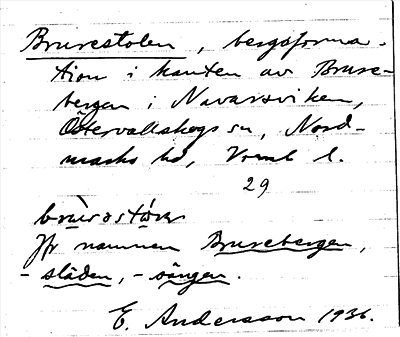 Brurestolen, bergsforma-
tion i kanten av Brure-
bergen i Navarsviken,
Östervallskogs sn, Nord-
marks hd, Vrml l.
29
Jfr namnen Brurebergen,
- släden, - sängen.
E. Andersson 1936.